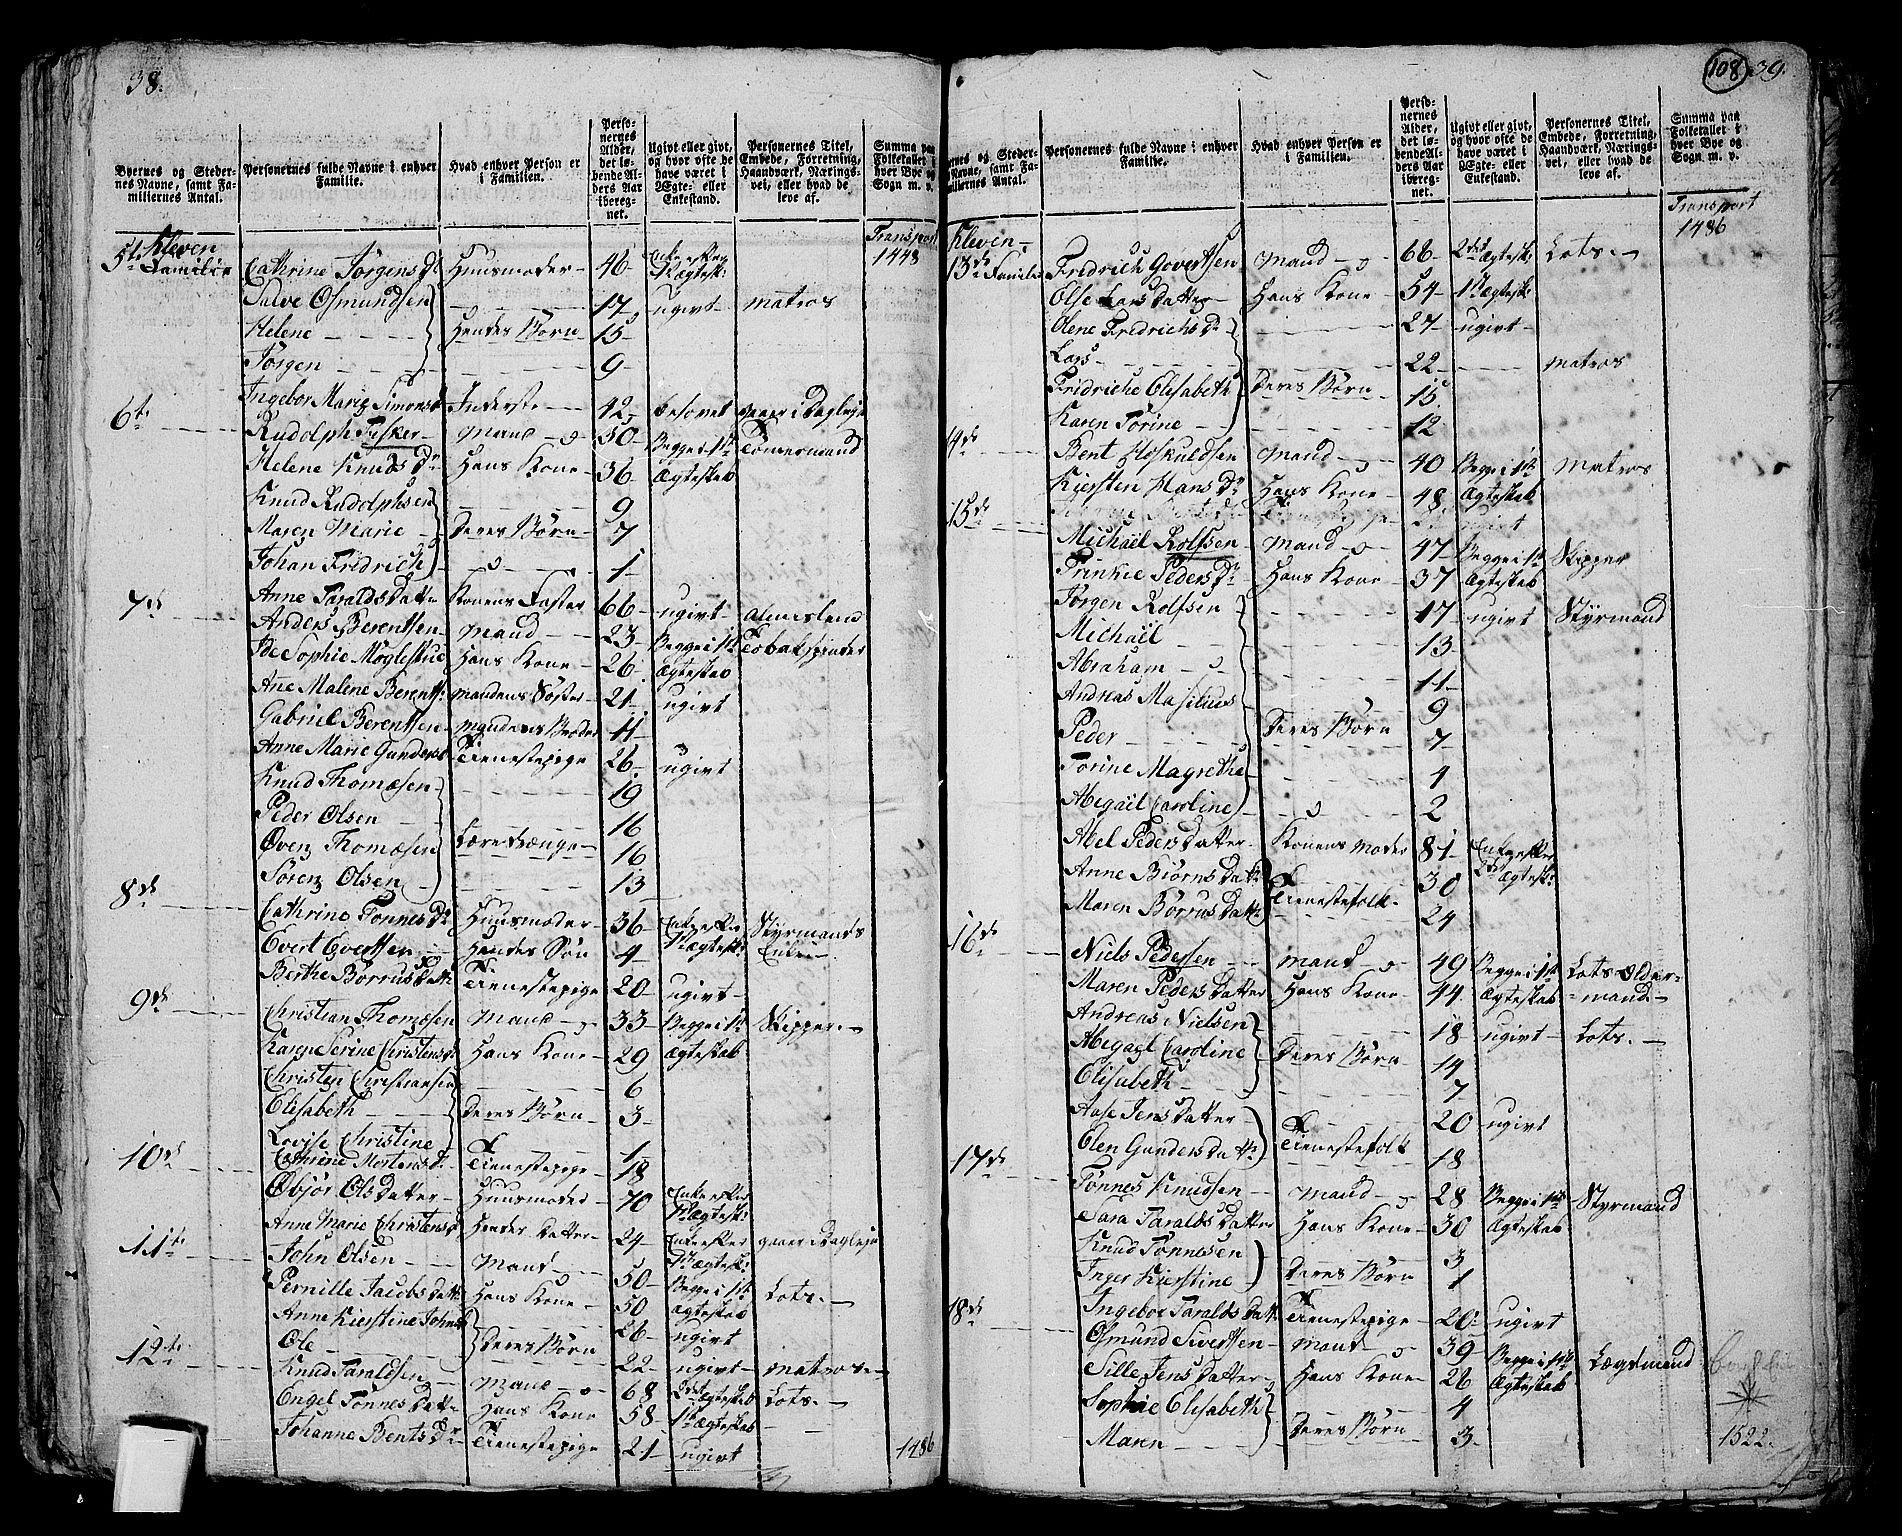 38.
Byernes og Stedernes Navne, samt Familiernes Antal.
Personernes fulde Navne i enhver Familie.
Hvad enhver Person er i Familien.
Personernes Alder, det løbende Alders Aar iberegnet.
Ugivt eller givt, og hvor ofte de have været i Ægte- eller Enkestand.
Personernes Titel, Embede, Forretning, Haandværk, Næringsvei, eller hvad de leve af.
Summa paa Folketallet i hver Bye og Sogn m. v.
Transport 1448
Kleven
5te Familie Cathrine Jørgens Dr Huusmoder 46 Enke efter 1st Ægtesk:
Salve Osmundsen 17 ugivt matros
Helene Hendes Børn 15
Jørgen 9
Ingebor Marie Simonsd Inderste 42 besovet gaaer i Dagleje
6te Rudolph Fisker Mand 50 Begge i 1ste Tømermand
Helene Knuds Dr Hans Kone 36 Ægteskab
Knud Rudolphsen 9
Maren Marie Deres Børn 7
Johan Fridrich 1
Anne Taralds Datter Konens Faster 66 ugivt Almislem
7de Anders Berentsen Mand 23 Begge i 1ste Tobakspinder
Ide Sophie Møglestue Hans Kone 26 Ægteskab
Ane Malene Berents: mandens Søster 21 ugivt
Gabriel Berentsen mandens Broder 11
Anne Marie Gunders Tienestepige 26 ugivt
Knud Thomæsen 19
Peder Olsen 16
Øven Thomæsen Læredrænge 16
Søren Olsen 13
8de Cathrine Tønnes Dr Huusmoder 36 Enke efter Styrmands
Evert Evertsen Hendes Søn 4 1st Ægtesk: Enke
Berthe Børrus Datt: Tienestepige 20 ugivt
9de Christian Thomæsen Mand 33 Begge i 1ste Skipper
Karen Serine Christensd Hans Kone 29 Ægteskab
Christen Christiansen 6
Elisabeth Deres Børn 3
Lovise Christine 1
Cathrine Mortensd Tienestepige 18
10de Øbjør Ols Datter Huusmoder 70 Enke efter 1st Ægtesk:
Anne Marie Christensd Hendes Datter 24 Enke efter 1st Ægtesk: gaaer i Dagleje
11te John Olsen Mand 50 Begge i 1ste
Pernille Jacobs Datt: Hans Kone 50 Ægteskab Lots.
Anne Kierstine Johns 26 ugivt
Ole Deres Børn 22 ugivt matros
12te Knud Taraldsen Mand 68 2det Ægteskab Lots.
Engel Tønnes Datt: Hans Kone 58 1st Ægteskab
Johanne Bents Dr Tienestepige 21 ugivt
1486
108 39.
Byernes og Stedernes Navne, samt Familiernes Antal.
Personernes fulde Navne i enhver Familie.
Hvad enhver Person er i Familien.
Personernes Alder, det løbende Alders Aar iberegnet.
Ugivt eller givt, og hvor ofte de have været i Ægte- eller Enkestand.
Personernes Titel, Embede, Forretning, Haandværk, Næringsvei, eller hvad de leve af.
Summa paa Folketallet i hver Bye og Sogn m. v.
Transport 1486
Kleven
13de Familie Fridrich Govertsen Mand 66 2det Ægtesk: Lots.
Else Lars Datter Hans Kone 54 1st Ægtesk:
Olene Fridrichs Dr 27 ugivt
Lars 22 matros
Fridriche Elisabeth Deres Børn 15
Karen Torine 12
14de Bent Høskuldsen Mand 40 Begge i 1ste Matros
Kiersten Hans Dr Hans Kone 48 Ægteskab
ugivt
15de Michael Rolfsen Mand 47 Begge i 1st Skipper
Trinkie Peders Dr Hans Kone 37 Ægteskab
Jørgen Rolfsen 17 ugivt Styrmand
Michael 13
Abraham 11
Andreas Masilius 9
Peder Deres Børn 7
Torine Magrethe 4
Abegael Caroline 2
Abel Peders Datter Konens Moder 81 Enke efter 2det Ægtesk:
Anne Biørns Datt: 30
Maren Børrus Datt: Tienestefolk 24
16de Niels Pedersen Mand 49 Begge i 1st Lots Older=
Maren Peders Datter Hans Kone 44 Ægteskab =mand
Andreas Nielsen 18 ugivt Lots.
Abegael Caroline Deres Børn 14
Elisabeth 7
Aase Jens Datter 20 ugivt
Elen Gunders Datt: Tienestefolk 18
17de Tønnes Knudsen Mand 28 Begge i 1ste Styrmand
Sara Taralds Datter Hans Kone 30 Ægteskab
Knud Tønnesen 3
Inger Kierstine Deres Børn 1
Ingebor Taralds Datt: Tienestepige 20 ugivt
18de Osmund Sivertsen Mand 39 Begge i 1ste Lægdmand
Sille Jens Datter Hans Kone 26 Ægteskab
Sophie Elisabeth 4
Maren Deres Børn 3
1522.